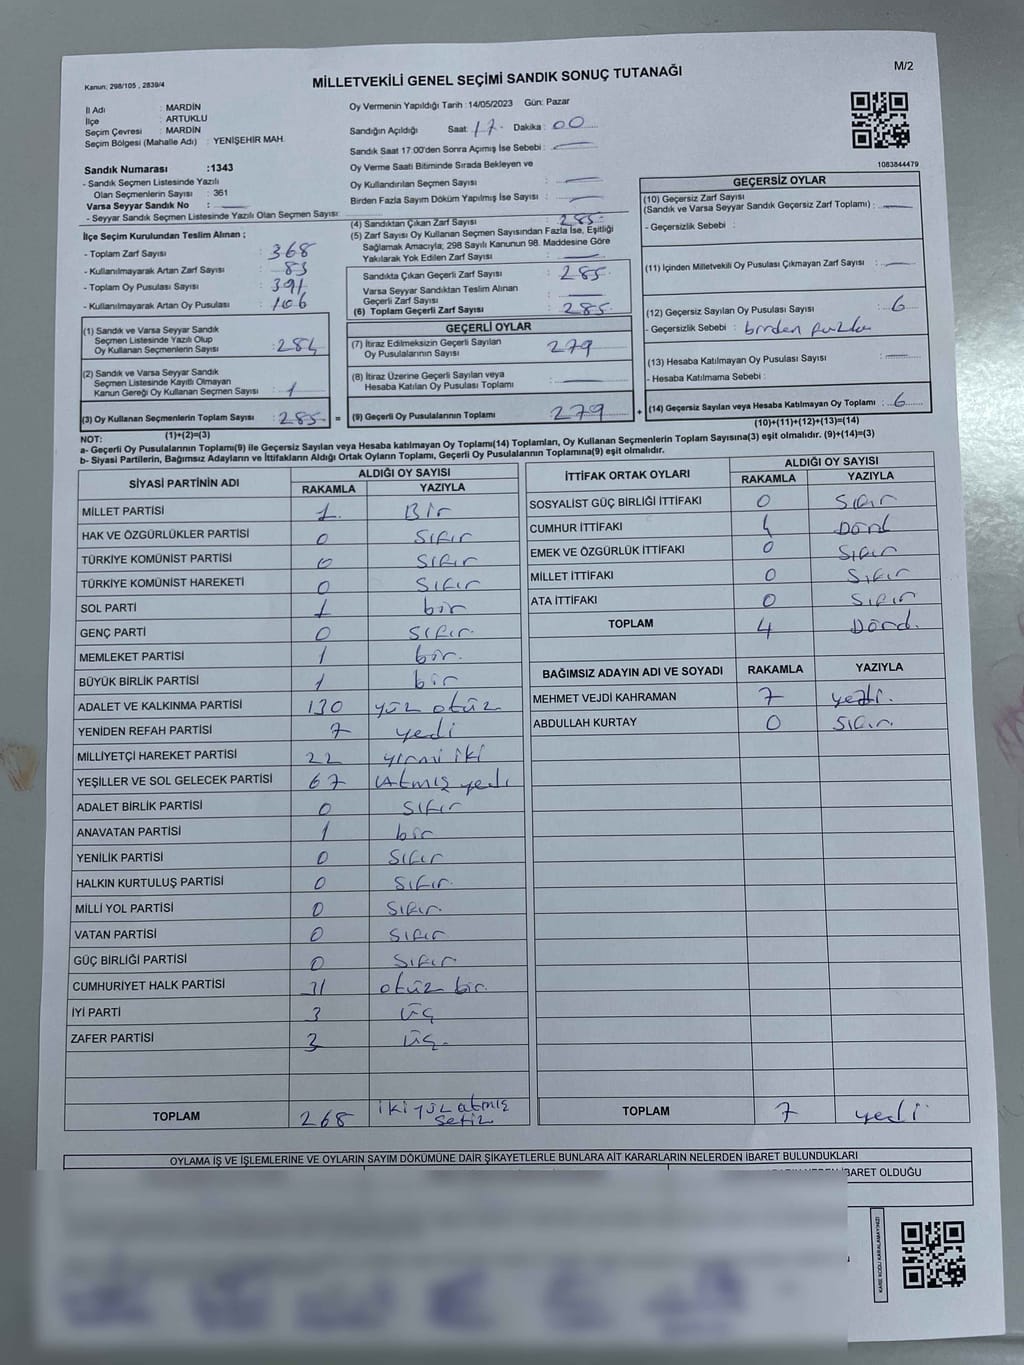 Kanun: 298/105 , 2839/4
MİLLETVEKİLİ GENEL SEÇİMİ SANDIK SONUÇ TUTANAĞI
M/2
İl Adı : MARDİN
İlçe : ARTUKLU
Seçim Çevresi : MARDİN
Seçim Bölgesi (Mahalle Adı) : YENİŞEHİR MAH.
Sandık Numarası :1343
- Sandık Seçmen Listesinde Yazılı
Olan Seçmenlerin Sayısı : 361
Varsa Seyyar Sandık No :
- Seyyar Sandık Seçmen Listesinde Yazılı Olan Seçmen Sayısı:
Oy Vermenin Yapıldığı Tarih :14/05/2023 Gün: Pazar
Sandığın Açıldığı Saat: 17. Dakika : 00
Sandık Saat 17:00'den Sonra Açımış İse Sebebi :
Oy Verme Saati Bitiminde Sırada Bekleyen ve
Oy Kullandırılan Seçmen Sayısı :
Birden Fazla Sayım Döküm Yapılmış İse Sayısı :
1083844479
İlçe Seçim Kurulundan Teslim Alınan ;
- Toplam Zarf Sayısı : 368
- Kullanılmayarak Artan Zarf Sayısı : 83
- Toplam Oy Pusulası Sayısı : 391
- Kullanılmayarak Artan Oy Pusulası : 106
(1) Sandık ve Varsa Seyyar Sandık
Seçmen Listesinde Yazılı Olup
Oy Kullanan Seçmenlerin Sayısı : 284
(2) Sandık ve Varsa Seyyar Sandık
Seçmen Listesinde Kayıtlı Olmayan
Kanun Gereği Oy Kullanan Seçmen Sayısı : 1
(3) Oy Kullanan Seçmenlerin Toplam Sayısı : 285 =
(1)+(2)=(3)
(4) Sandıktan Çıkan Zarf Sayısı : 285
(5) Zarf Sayısı Oy Kullanan Seçmen Sayısından Fazla İse, Eşitliği
Sağlamak Amacıyla; 298 Sayılı Kanunun 98. Maddesine Göre
Yakılarak Yok Edilen Zarf Sayısı :
Sandıkta Çıkan Geçerli Zarf Sayısı : 285
Varsa Seyyar Sandıktan Teslim Alınan
Geçerli Zarf Sayısı :
(6) Toplam Geçerli Zarf Sayısı : 285.
GEÇERLİ OYLAR
(7) İtiraz Edilmeksizin Geçerli Sayılan
Oy Pusulalarının Sayısı : 279
(8) İtiraz Üzerine Geçerli Sayılan veya
Hesaba Katılan Oy Pusulası Toplamı :
(9) Geçerli Oy Pusulalarının Toplamı : 279 +
GEÇERSİZ OYLAR
(10) Geçersiz Zarf Sayısı
(Sandık ve Varsa Seyyar Sandık Geçersiz Zarf Toplamı) :
- Geçersizlik Sebebi :
(11) İçinden Milletvekili Oy Pusulası Çıkmayan Zarf Sayısı :
(12) Geçersiz Sayılan Oy Pusulası Sayısı : 6
- Geçersizlik Sebebi : birden fazla
(13) Hesaba Katılmayan Oy Pusulası Sayısı :
- Hesaba Katılmama Sebebi :
(14) Geçersiz Sayılan veya Hesaba Katılmayan Oy Toplamı : 6
(10)+(11)+(12)+(13)=(14)
NOT:
a- Geçerli Oy Pusulalarının Toplamı(9) ile Geçersiz Sayılan veya Hesaba katılmayan Oy Toplamı(14) Toplamları, Oy Kullanan Seçmenlerin Toplam Sayısına(3) eşit olmalıdır. (9)+(14)=(3)
b- Siyasi Partilerin, Bağımsız Adayların ve İttifakların Aldığı Ortak Oyların Toplamı, Geçerli Oy Pusulalarının Toplamına(9) eşit olmalıdır.
SİYASİ PARTİNİN ADI ALDIĞI OY SAYISI
RAKAMLA YAZIYLA
MİLLET PARTİSİ 1. Bir
HAK VE ÖZGÜRLÜKLER PARTİSİ 0 Sıfır
TÜRKİYE KOMÜNİST PARTİSİ 0 Sıfır
TÜRKİYE KOMÜNİST HAREKETİ 0 Sıfır
SOL PARTİ 1 bir
GENÇ PARTİ 0 Sıfır.
MEMLEKET PARTİSİ 1 bir.
BÜYÜK BİRLİK PARTİSİ 1 bir
ADALET VE KALKINMA PARTİSİ 130 yüz otuz
YENİDEN REFAH PARTİSİ 7 yedi
MİLLİYETÇİ HAREKET PARTİSİ 22 yirmi iki
YEŞİLLER VE SOL GELECEK PARTİSİ 67 Atmış yedi
ADALET BİRLİK PARTİSİ 0 Sıfır
ANAVATAN PARTİSİ 1 bir
YENİLİK PARTİSİ 0 Sıfır
HALKIN KURTULUŞ PARTİSİ 0 Sıfır.
MİLLİ YOL PARTİSİ 0 Sıfır.
VATAN PARTİSİ 0 Sıfır
GÜÇ BİRLİĞİ PARTİSİ 0 Sıfır
CUMHURİYET HALK PARTİSİ 31 otüz bir.
İYİ PARTİ 3 üç
ZAFER PARTİSİ 3 üç.
TOPLAM 268 iki yüz atmış
sekiz
İTTİFAK ORTAK OYLARI ALDIĞI OY SAYISI
RAKAMLA YAZIYLA
SOSYALİST GÜÇ BİRLİĞİ İTTİFAKI 0 Sıfır
CUMHUR İTTİFAKI 4 Dörd
EMEK VE ÖZGÜRLÜK İTTİFAKI 0 Sıfır
MİLLET İTTİFAKI 0 Sıfır
ATA İTTİFAKI 0 Sıfır
TOPLAM 4 Dörd.
BAĞIMSIZ ADAYIN ADI VE SOYADI RAKAMLA YAZIYLA
MEHMET VEJDİ KAHRAMAN 7 yedi.
ABDULLAH KURTAY 0 Sıfır.
TOPLAM 7 yedi
OYLAMA İŞ VE İŞLEMLERİNE VE OYLARIN SAYIM DÖKÜMÜNE DAİR ŞİKAYETLERLE BUNLARA AİT KARARLARIN NELERDEN İBARET BULUNDUKLARI
İBARET OLDUĞU
KARE KODU KARALAMAYINIZ!